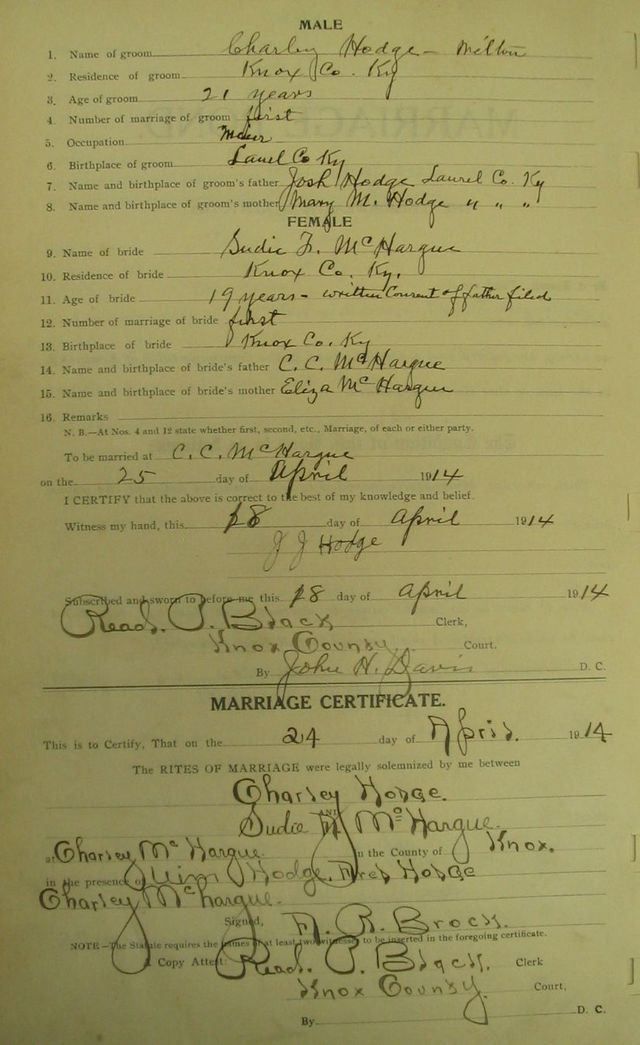 MALE
1. Name of groom Charley Hodge - Milton
2. Residence of groom Knox Co. Ky
3. Age of groom 21 years
4. Number of marriage of groom first
5. Occupation
6. Birthplace of groom Laurel Co Ky
7. Name and birthplace of groom's father Josh Hodge Laurel Co. Ky
8. Name and birthplace of groom's mother Mary M. Hodge " " "
FEMALE
9. Name of bride Sudie F. McHargue
10. Residence of bride Knox Co. Ky.
11. Age of bride 19 years - written Consent of father filed
12. Number of marriage of bride first
13. Birthplace of bride Knox Co. Ky
14. Name and birthplace of bride's father C. C. McHargue
15. Name and birthplace of bride's mother Eliza McHargue
16. Remarks
N. B.—At Nos. 4 and 12 state whether first, second, etc., Marriage, of each or either party.
To be married at C. C. McHargue
on the 25 day of April 1914
I CERTIFY that the above is correct to the best of my knowledge and belief.
Witness my hand, this 18 day of April 1914
J J Hodge
Subscribed and sworn to before me this 18 day of April 1914
Read. P. Black Clerk,
Knox County Court.
By John H. Davis D. C.
MARRIAGE CERTIFICATE.
This is to Certify, That on the 24 day of April. 1914
The RITES OF MARRIAGE were legally solemnized by me between
Charley Hodge.
AND
Sudie McHargue.
at Charley McHargue in the County of Knox.
in the presence of Hodge. Fred Hodge
Charley McHargue.
Signed, A. R. Brock.
NOTE—The Statute requires the names of at least two witnesses to be inserted in the foregoing certificate.
A Copy Attest: Read. P. Black. Clerk
Knox County Court,
By D. C.